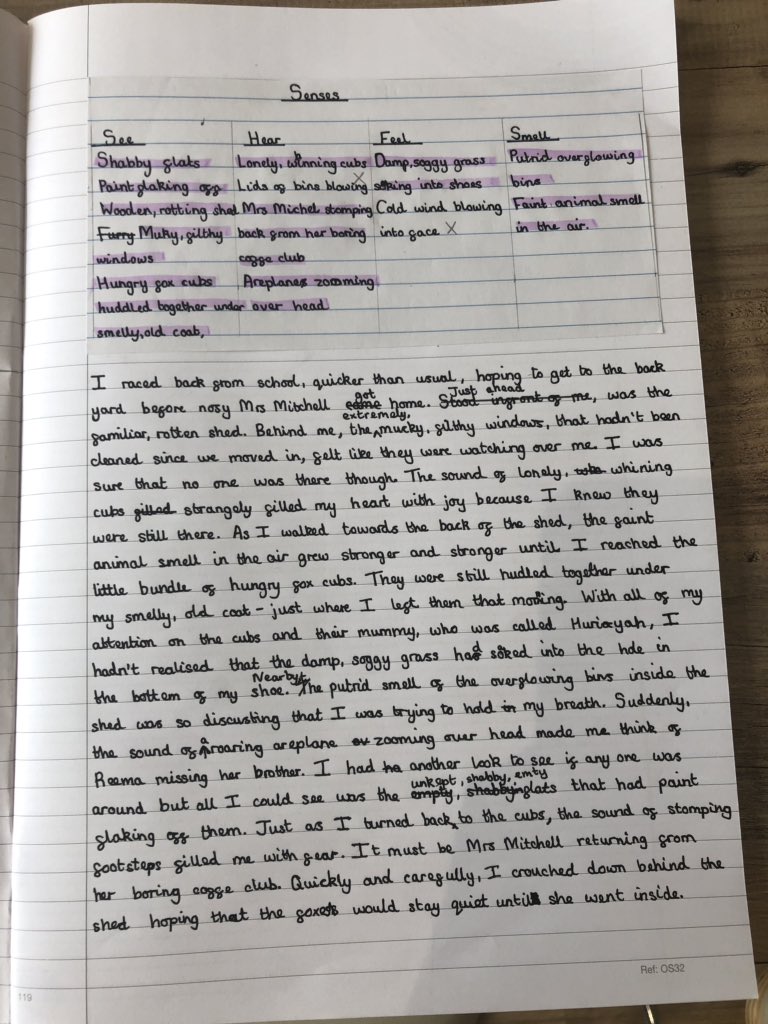 Senses
See Hear Feel Smell
Shabby flats Lonely, whinning cubs Damp, soggy grass Putrid overflowing
Paint flaking off Lids of bins blowing soking into shoes bins
Wooden, rotting shed Mrs Michel stomping Cold wind blowing Faint animal smell
Furry Muky, filthy back from her boring into face in the air.
windows coffe club
Hungry fox cubs Areplanes zoomming
huddled together under over head
smelly, old coat,
I raced back from school, quicker than usual, hoping to get to the back
got Just ahead
yard before nosy Mrs Mitchell came home. Stood infront of me, was the
extremely,
familiar, rotten shed. Behind me, the mucky, filthy windows, that hadn't been
cleaned since we moved in, felt like they were watching over me. I was
sure that no one was there though. The sound of lonely, whining
cubs filled strangely filled my heart with joy because I knew they
were still there. As I walked towards the back of the shed, the faint
animal smell in the air grew stronger and stronger until I reached the
little bundle of hungry fox cubs. They were still hudled together under
my smelly, old coat - just where I left them that morning. With all of my
attention on the cubs and their mummy, who was called Hurriyah, I
hadn't realised that the damp, soggy grass had soked into the hole in
Nearby,
the bottom of my shoe. The putrid smell of the overflowing bins inside the
shed was so discusting that I was trying to hold in my breath. Suddenly,
the sound of a roaring areplane zooming over head made me think of
Reema missing her brother. I had another look to see if any one was
unkept, shabby, emty
around but all I could see was the empty, shabby flats that had paint
flaking off them. Just as I turned back to the cubs, the sound of stomping
footsteps filled me with fear. It must be Mrs Mitchell returning from
her boring coffe club. Quickly and carefully, I crouched down behind the
shed hoping that the foxes would stay quiet until she went inside.
119
Ref: OS32